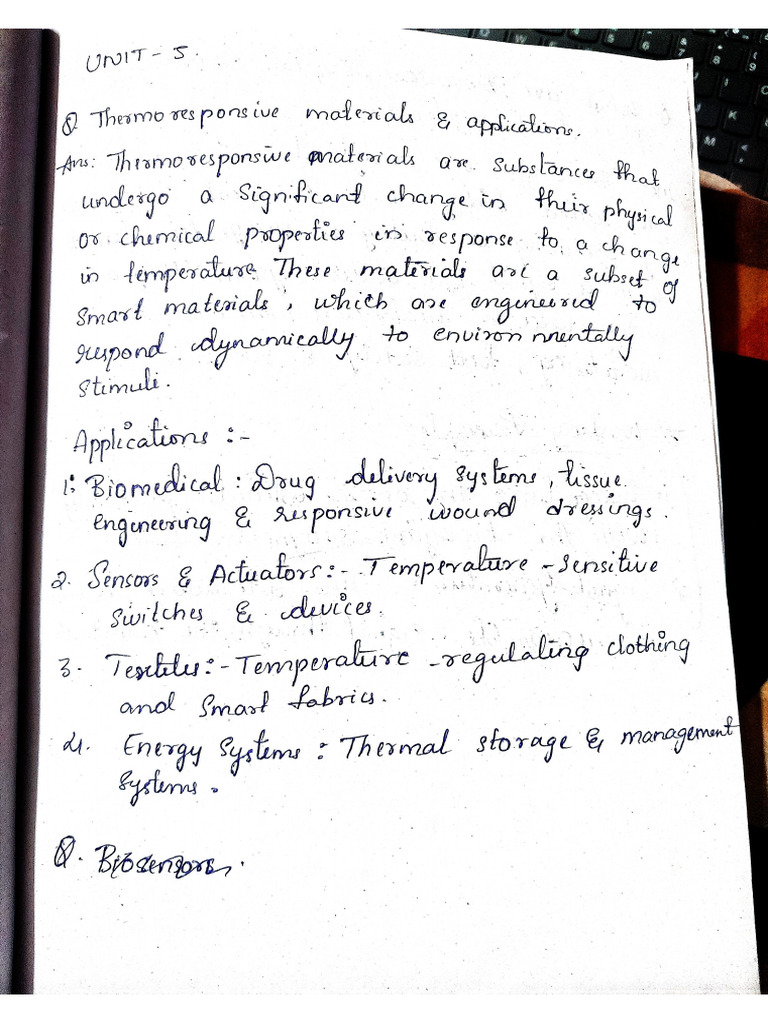 UNIT - 5.
Q Thermoresponsive materials & applications.
Ans: Thermoresponsive materials are substances that
undergo a significant change in their physical
or chemical properties in response to a change
in temperature. These materials are a subset of
smart materials, which are engineered to
respond dynamically to environmentally
stimuli.
Applications :-
1: Biomedical : Drug delivery systems, tissue
engineering & responsive wound dressings.
2. Sensors & Actuators :- Temperature - sensitive
switches & devices.
3. Textiles :- Temperature - regulating clothing
and smart fabrics.
4. Energy Systems : Thermal storage & management
systems.
Q. Biosensors.